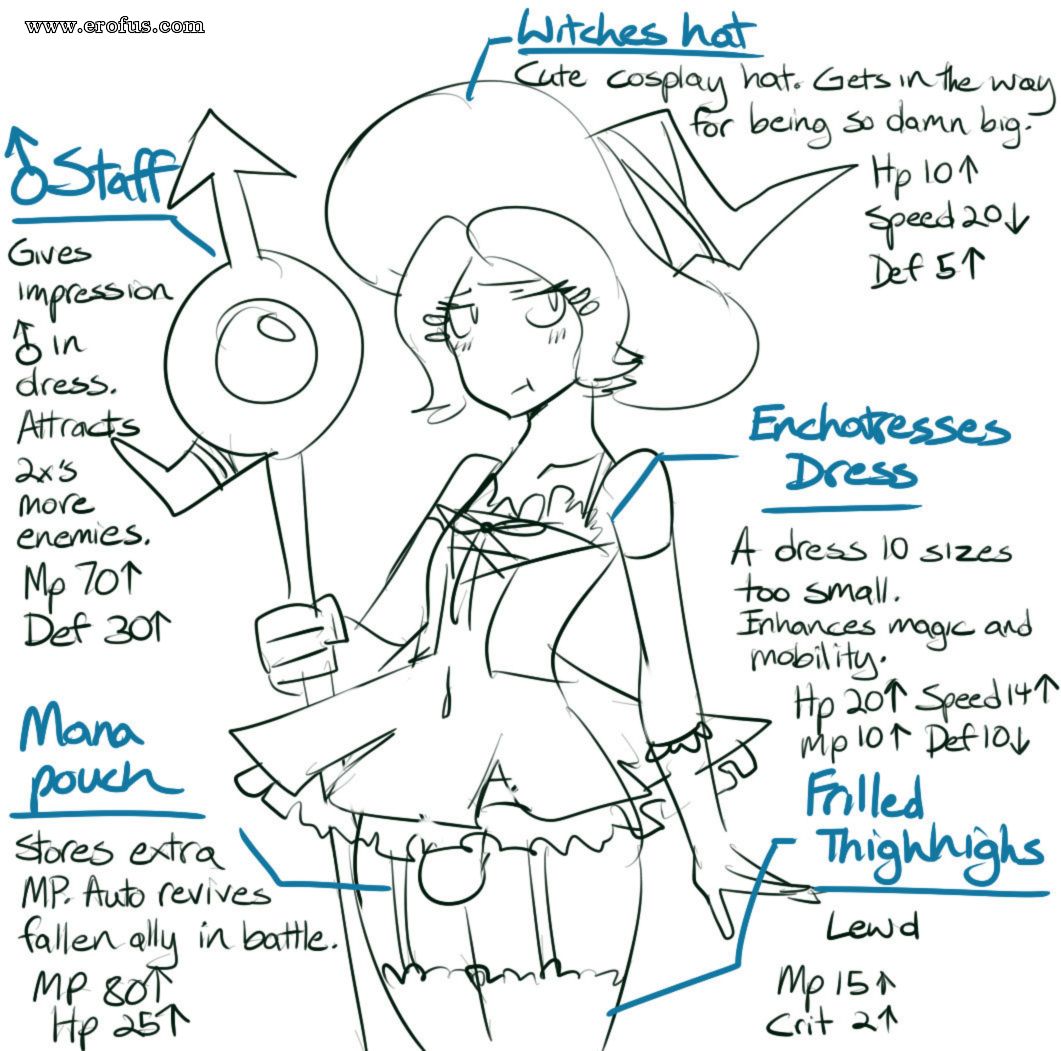 www.erofus.com
Witches hat
Cute cosplay hat. Gets in the way
for being so damn big.
Hp 10↑
Speed 20↓
Def 5↑
♂Staff
Gives
impression
♂ in
dress.
Attracts
2x's
more
enemies.
Mp 70↑
Def 30↑
Enchotresses
Dress
A dress 10 sizes
too small.
Enhances magic and
mobility.
Hp 20↑ Speed 14↑
Mp 10↑ Def 10↓
Mana
pouch
Stores extra
MP. Auto revives
fallen ally in battle.
MP 80↑
Hp 25↑
Frilled
Thighhighs
Lewd
Mp 15↑
Crit 2↑